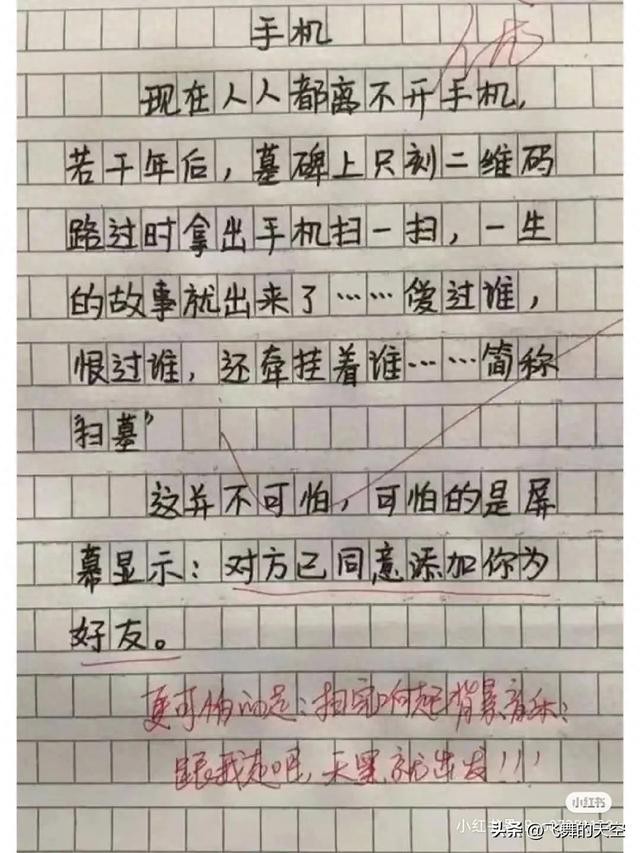 手机
优
现在人人都离不开手机,
若干年后,墓碑上只刻二维码
路过时拿出手机扫一扫,一生
的故事就出来了……爱过谁,
恨过谁,还牵挂着谁……简称
"扫墓"
这并不可怕,可怕的是屏
幕显示:对方已同意添加你为
好友。
更可怕的是:扫完响起背景音乐:
跟我走吧,天黑就出发!!!
小红书
头条@飞舞的天空